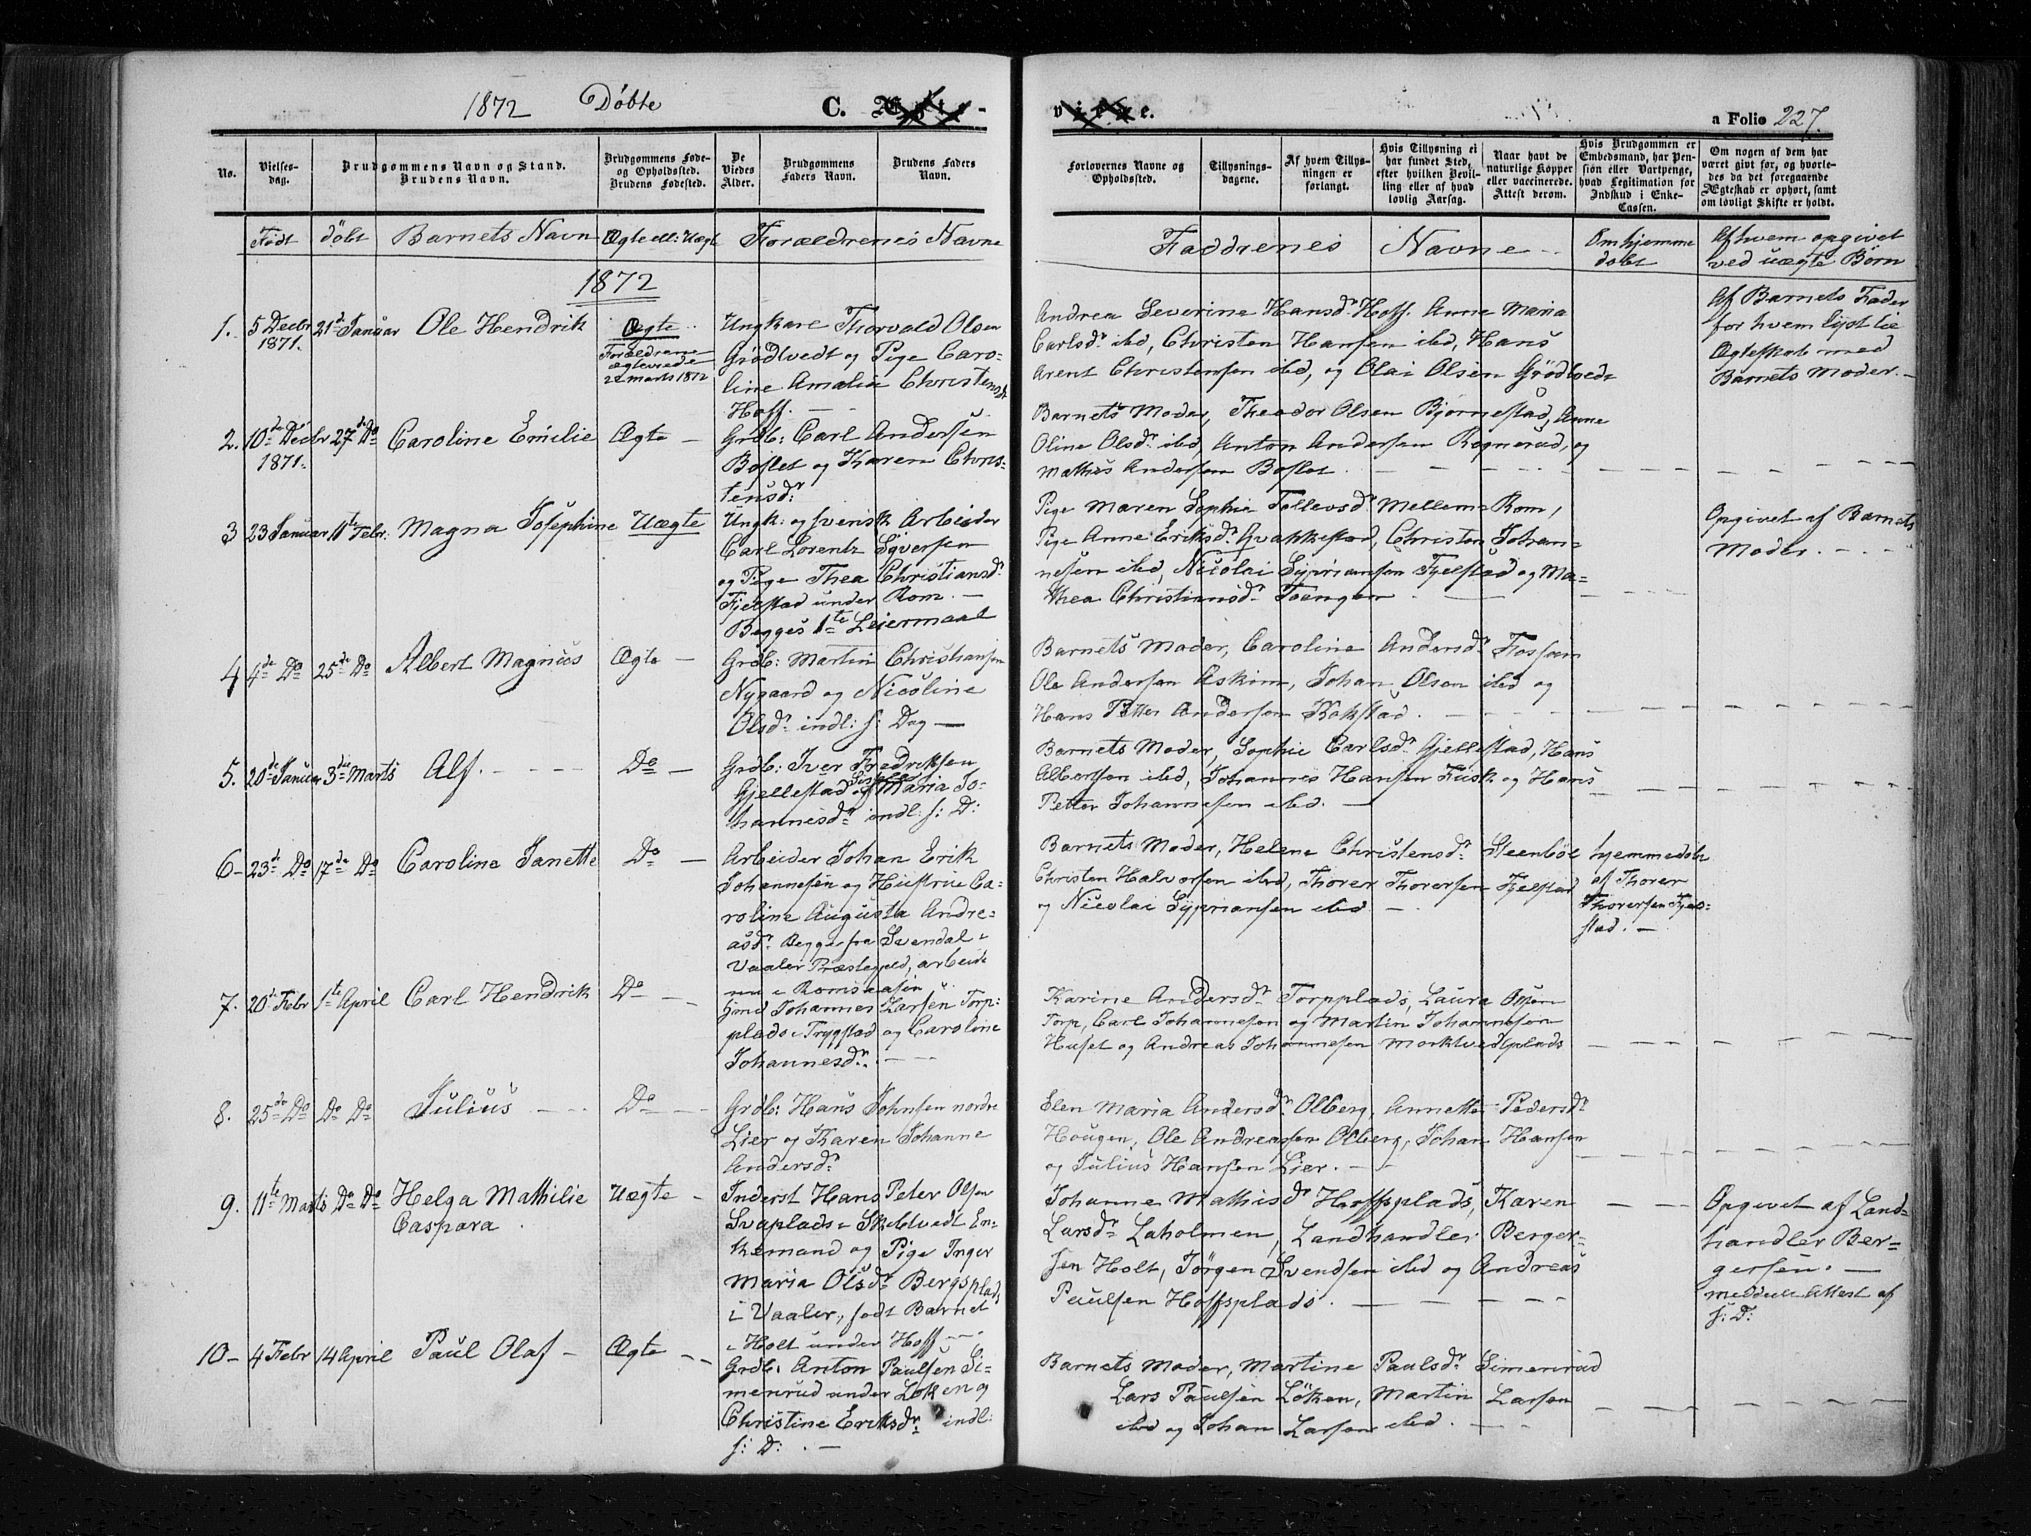 1872 Döbte C. Ægte-
vie e.
a Folio 227.
No.
Vielses-
dag.
Brudgommens Navn og Stand.
Brudens Navn.
Brudgommens Føde-
og Opholdssted.
Brudens Fødested.
De
Viedes
Alder.
Brudgommens
Faders Navn.
Brudens Faders
Navn.
Forlovernes Navne og
Opholdssted.
Tillysnings-
dagene.
Af hvem Tillys-
ningen er
forlangt.
Hvis Tillysning ei
har fundet Sted,
efter hvilken Bevil-
ling eller af hvad
lovlig Aarsag.
Naar havt de
naturlige Kopper
eller vaccinerede.
Attest derom.
Hvis Brudgommen er
Embedsmand, har Pen-
sion eller Vartpenge,
hvad Legitimation for
Indskud i Enke-
Cassen.
Om nogen af dem har
været gift før, og hvorle-
des da det foregaaende
Ægteskab er ophørt, samt
om lovligt Skifte er holdt.
Födt
döbt
Barnets Navn
Ægte ell: Uægt
Forældrenes Navne
Faddrenes Navne
Om hjemme
döbt
Af hvem opgivet
ved uægte Børn
1872
1.
5 Decbr
1871.
21de Januar
Ole Hendrik
Ægte
Forældrene
ægteviede
22 Marts 1872
Ungkare Thorvald Olsen
Grödtvedt og Pige Caro-
line Amalia Christensdr
Hoff. — —
Andrea Severine Hansdr Hoff. Anne Maria
Carlsdr ibd, Christen Hansen ibd, Hans
Arent Christensen ibd, og Olai Olsen Grödtvedt
Af Barnets Fader
for hvem lyst til
Ægteskab med
Barnets Moder. —
2.
10de Decbr
1871.
27de Do
Caroline Emilie
Ægte —
Grdb: Carl Andersen
Boslet og Karen Chris-
tensdr
Barnets Moder, Theodor Olsen Bjørnestad, Anne
Oline Olsdr ibd, Anton Andersen Rognerud, og
Mathis Andersen Boslet.
3
23 Januar
11te Febr:
Magna Josephine
Uægte
Ungk: og svensk Arbeider
Carl Lorentz Syversen
og Pige Thea Christiansdr
Fjelstad under Rom. —
Begges 1te Leiermaal
Pige Maren Sophie Tollevsdr Mellem Rom,
Pige Anne Eriksdr Qvakkestad, Christen Johan-
nesen ibd, Nicolai Syprianssen Fjelstad og Ma-
thea Christiansdr Tængen
Opgivet af Barnets
Moder. — . — .
4
4de Do
25de Do
Albert Magnus
Ægte —
Grdb: Martin Christiansen
Nygaard og Nicoline
Olsdr indl: s: Dag —
Barnets Moder, Caroline Andersdr Fossum
Ole Andersen Askim, Johan Olsen ibd og
Hans Petter Andersen Kokstad.
5.
20de Januar
3die Marts
Alf. — — —
Do —
Grdb: Iver Fredriksen
Gjellestad og Sophie Maria Jo-
hannesdr indl: s: D:
Barnets Moder, Sophie Carlsdr Gjellestad, Hans
Albertsen ibd, Johannes Hansen Fusk og Hans
Petter Johannesen ibd. —
6 –
23de Do
17de Do
Caroline Janette
Do —
Arbeider Johan Erik
Johannesen og Hustrue Ca-
roline Augusta Andre-
asdr Begge fra Svendal i
Vaaler Præstegjeld, arbeide
nu i Romsaasen
Barnets Moder, Helene Christensdr Steenböl
Christen Halvorsen ibd, Thorer Thorersen Fjelstad
og Nicolai Syprianssen ibd —
hjemmedöbt
af Thorer
Thorersen Fjel-
stad. —
7.
20de Febr
1te April
Carl Hendrik
Do —
Johannes Larsen Torp-
plads i Trygstad og Caroline
Johannesdr. — —
Karine Andersdr Torpplads, Laura Olsen
Torp, Carl Johannesen og Martin Johannesen
Huset og Andreas Johannesen Morktvedtplads
8.
25de Do
Do Do
Julius — — —
Do — —
Grdb: Hans Johnsen nordre
Lier og Karen Johanne
Andersdr
Elen Maria Andersdr Olberg, Annette Pedersdr
Hougen, Ole Andreassen Olberg, Johan Hansen
og Julius Hansen Lier. — —
9.
11te Marts
Do Do
Helga Mathilie
Caspara
Uægte —
Inderst Hans Peter Olsen
Svaplads i Skibtvedt En-
kemand og Pige Inger
Maria Olsdr Bergsplads
i Vaaler, födt Barnet
i Holt under Hoff — .
Johanne Mathisdr Hoffsplads, Karen
Larsdr Laholmen, Landhandler Berger-
sen Holt, Jørgen Svendsen ibd og Andreas
Paulsen Hoffsplads.
Opgivet af Land-
handler Ber-
gersen. —
meddelt Attest af
s: D:
10 –
4 Febr
14 April
Paul Olaf —
Ægte — —
Grdb: Anton Paulsen Si-
menrud under Løken og
Christine Eriksdr indl:
s: D: . —
Barnets Moder, Martine Paulsdr Simenrud
Lars Paulsen Löken, Martin Larsen
ibd og Johan Larsen ibd.